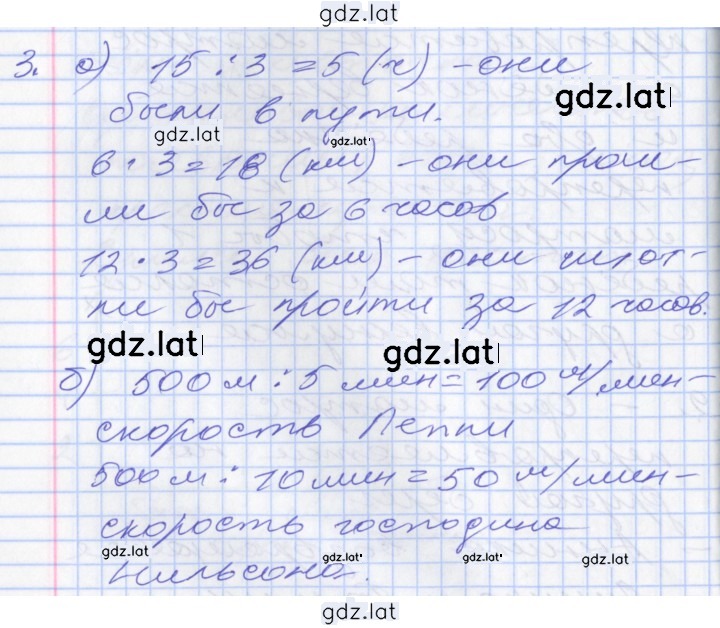 gdz.lat
3. а) 15 : 3 = 5 (ч) - они
gdz.lat
были в пути.
gdz.lat gdz.lat
6 · 3 = 18 (км) - они прош-
ли бы за 6 часов
12 · 3 = 36 (км) - они
ли бы пройти за 12 часов.
gdz.lat gdz.lat
б) 500 м : 5 мин = 100 м/мин -
скорость Пеппи
500 м : 10 мин = 50 м/мин -
скорость господина
gdz.lat gdz.lat gdz.lat gdz.lat
Нильсона.
gdz.lat